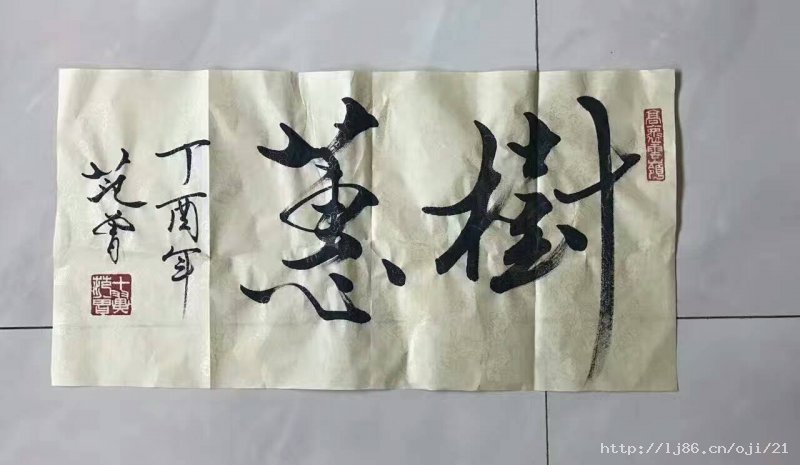 樹蕙
丁酉年
范曾
http://lj86.cn/oji/21